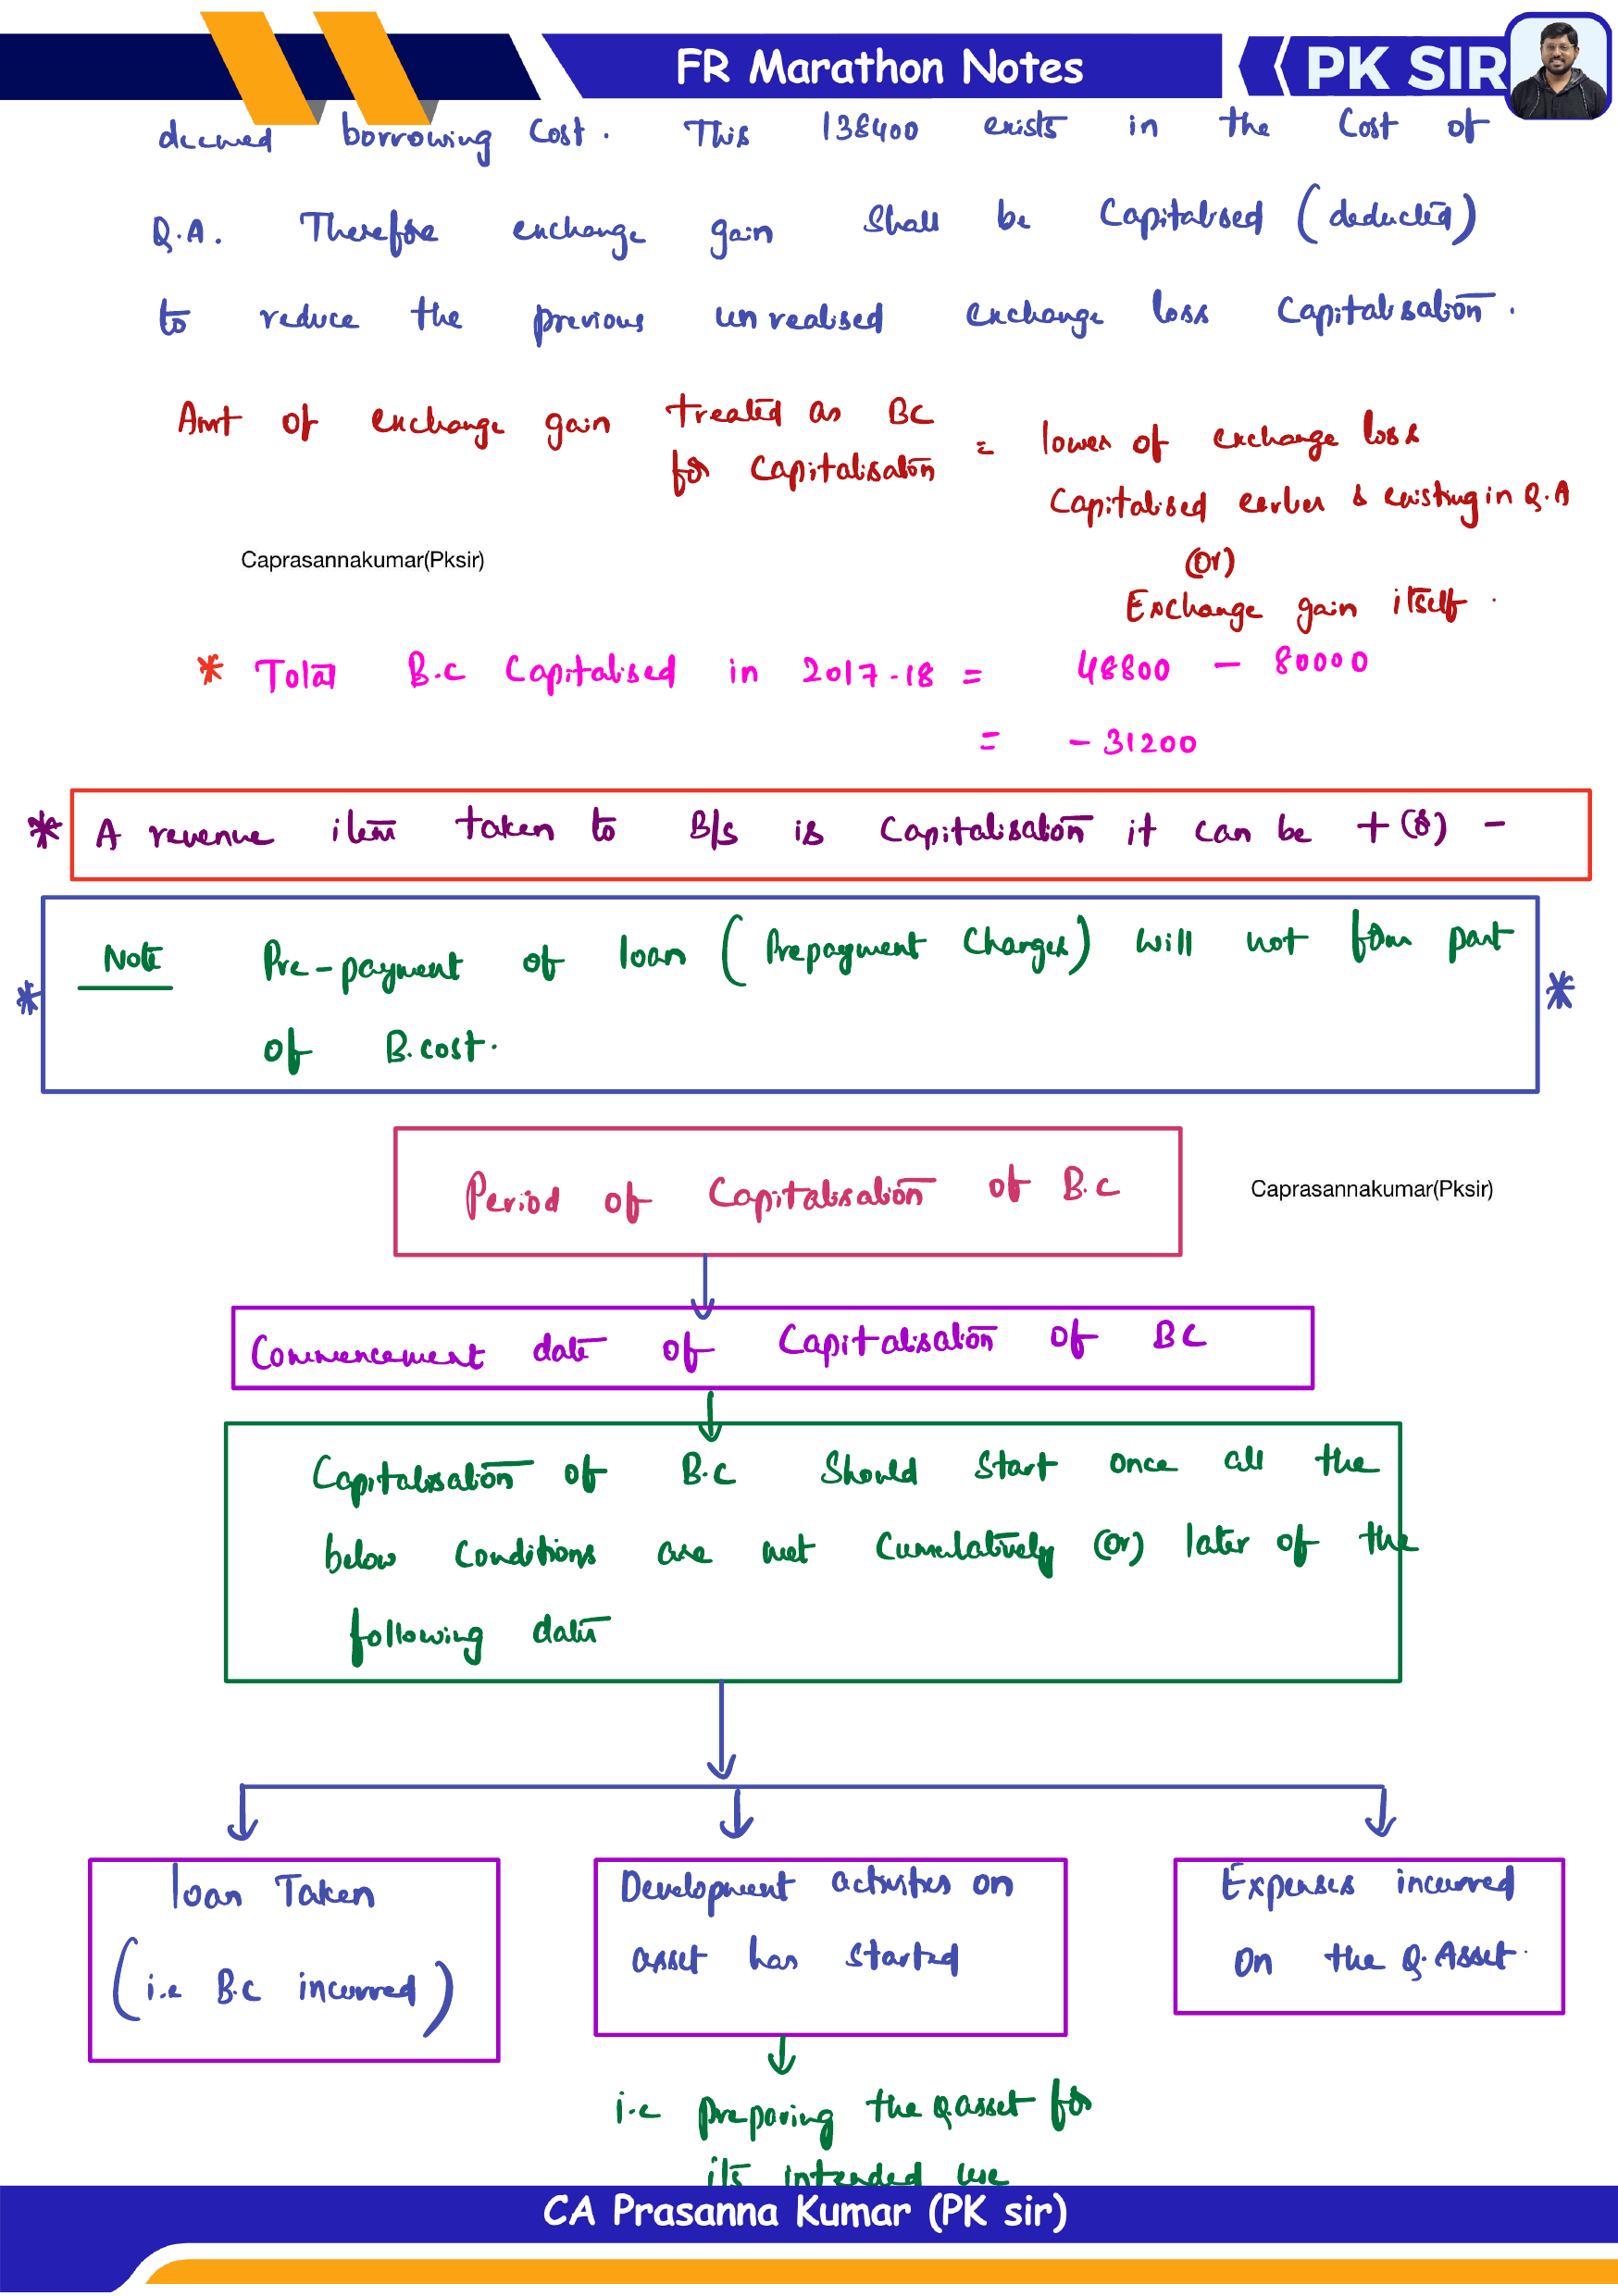 FR Marathon Notes
PK SIR
deemed borrowing Cost. This 138400 exists in the Cost of
Q.A. Therefore exchange gain Shall be Capitalised (deducted)
to reduce the previous unrealised exchange loss Capitalisation.
Amt of exchange gain treated as BC for Capitalisation = lower of exchange loss
Capitalised earlier & existing in Q.A
(or)
Exchange gain itself.
Caprasannakumar(Pksir)
* Total B.C Capitalised in 2017-18 = 48800 - 80000
= - 31200
* A revenue item taken to B/s is Capitalisation it can be + (or) -
* Note Pre-payment of loan (Prepayment Charges) will not form part *
of B.cost.
Period of Capitalisation of B.C
Caprasannakumar(Pksir)
Commencement date of Capitalisation of BC
Capitalisation of B.C Should Start once all the
below conditions are met Cumulatively (or) later of the
following date
loan Taken
(i.e B.C incurred)
Development activities on
asset has started
i.e preparing the q.asset for
its intended use
Expenses incurred
on the Q.Asset.
CA Prasanna Kumar (PK sir)